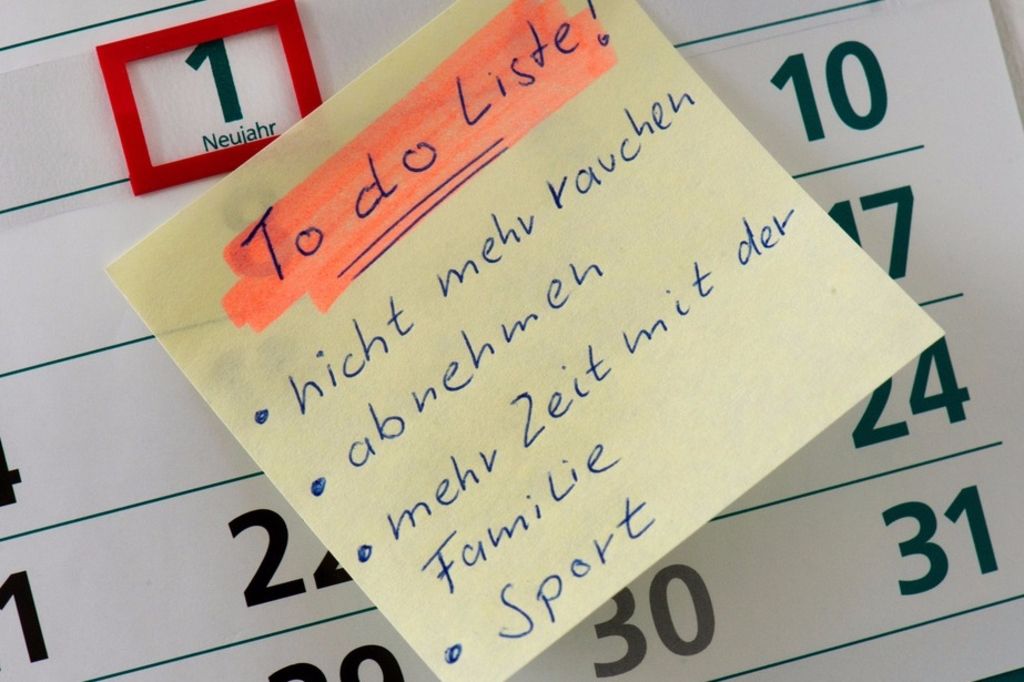 1
Neujahr
To do Liste!
• nicht mehr rauchen
• abnehmen
• mehr Zeit mit der
Familie
• Sport
10
17
24
22
31
29
30